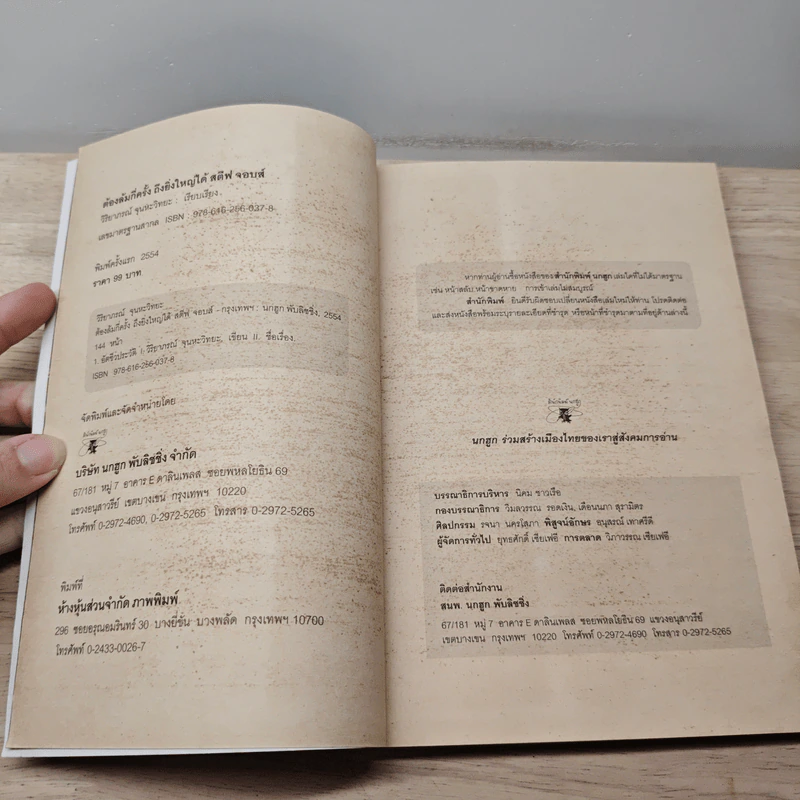 ต้องล้มกี่ครั้ง ถึงยิ่งใหญ่ได้ สตีฟ จอบส์
วิริยาภรณ์ จุนหะวิทยะ : เรียบเรียง.
เลขมาตรฐานสากล ISBN 978-616-266-037-8
พิมพ์ครั้งแรก 2554
ราคา 99 บาท
วิริยาภรณ์ จุนหะวิทยะ
ต้องล้มกี่ครั้ง ถึงยิ่งใหญ่ได้ สตีฟ จอบส์ - กรุงเทพฯ : นกฮูก พับลิชชิ่ง, 2554
144 หน้า
1. อัตชีวประวัติ I. วิริยาภรณ์ จุนหะวิทยะ, เขียน II. ชื่อเรื่อง.
ISBN 978-616-266-037-8
จัดพิมพ์และจัดจำหน่ายโดย
สำนักพิมพ์ นกฮูก
บริษัท นกฮูก พับลิชชิ่ง จำกัด
67/181 หมู่ 7 อาคาร E ดาลินเพลส ซอยพหลโยธิน 69
แขวงอนุสาวรีย์ เขตบางเขน กรุงเทพฯ 10220
โทรศัพท์ 0-2972-4690, 0-2972-5265 โทรสาร 0-2972-5265
พิมพ์ที่
ห้างหุ้นส่วนจำกัด ภาพพิมพ์
296 ซอยอรุณอมรินทร์ 30 บางยี่ขัน บางพลัด กรุงเทพฯ 10700
โทรศัพท์ 0-2433-0026-7
หากท่านผู้อ่านซื้อหนังสือของสำนักพิมพ์ นกฮูก เล่มใดที่ไม่ได้มาตรฐาน
เช่น หน้าสลับ หน้าขาดหาย การเข้าเล่มไม่สมบูรณ์
สำนักพิมพ์ ยินดีรับผิดชอบเปลี่ยนหนังสือเล่มใหม่ให้ท่าน โปรดติดต่อ
และส่งหนังสือพร้อมระบุรายละเอียดที่ชำรุด หรือหน้าที่ชำรุดมาตามที่อยู่ด้านล่างนี้
สำนักพิมพ์ นกฮูก
นกฮูก ร่วมสร้างเมืองไทยของเราสู่สังคมการอ่าน
บรรณาธิการบริหาร นิคม ชาวเรือ
กองบรรณาธิการ วิมลวรรณ รอดเงิน, เดือนนภา สุรามิตร
ศิลปกรรม รจนา นครโสภา พิสูจน์อักษร อนุสรณ์ เทาศรีดี
ผู้จัดการทั่วไป ยุทธศักดิ์ เชียเฟอี การตลาด วิภาวรรณ เชียเฟอี
ติดต่อสำนักงาน
สนพ. นกฮูก พับลิชชิ่ง
67/181 หมู่ 7 อาคาร E ดาลินเพลส ซอยพหลโยธิน 69 แขวงอนุสาวรีย์
เขตบางเขน กรุงเทพฯ 10220 โทรศัพท์ 0-2972-4690 โทรสาร 0-2972-5265